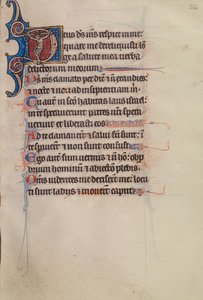 24
Deus ds ms respice in me:
quare me dereliquisti lon
ge a salute mea verba
delictorum meorum
Ds ms clamabo per diem et n exaudies:
et nocte et non ad insipientiam m
Tu aut in sco habitas laus israel:
in te speraverunt patres nri spera
verunt et liberasti eos
Ad te clamaverunt et salvi sunt:
in te speraverunt et non sunt confusi
Ego autem sum vermis et n ho: obpp
brium hominum et abiectio plebis
Oms videntes me me: locu
ti sunt labiis et moverunt caput